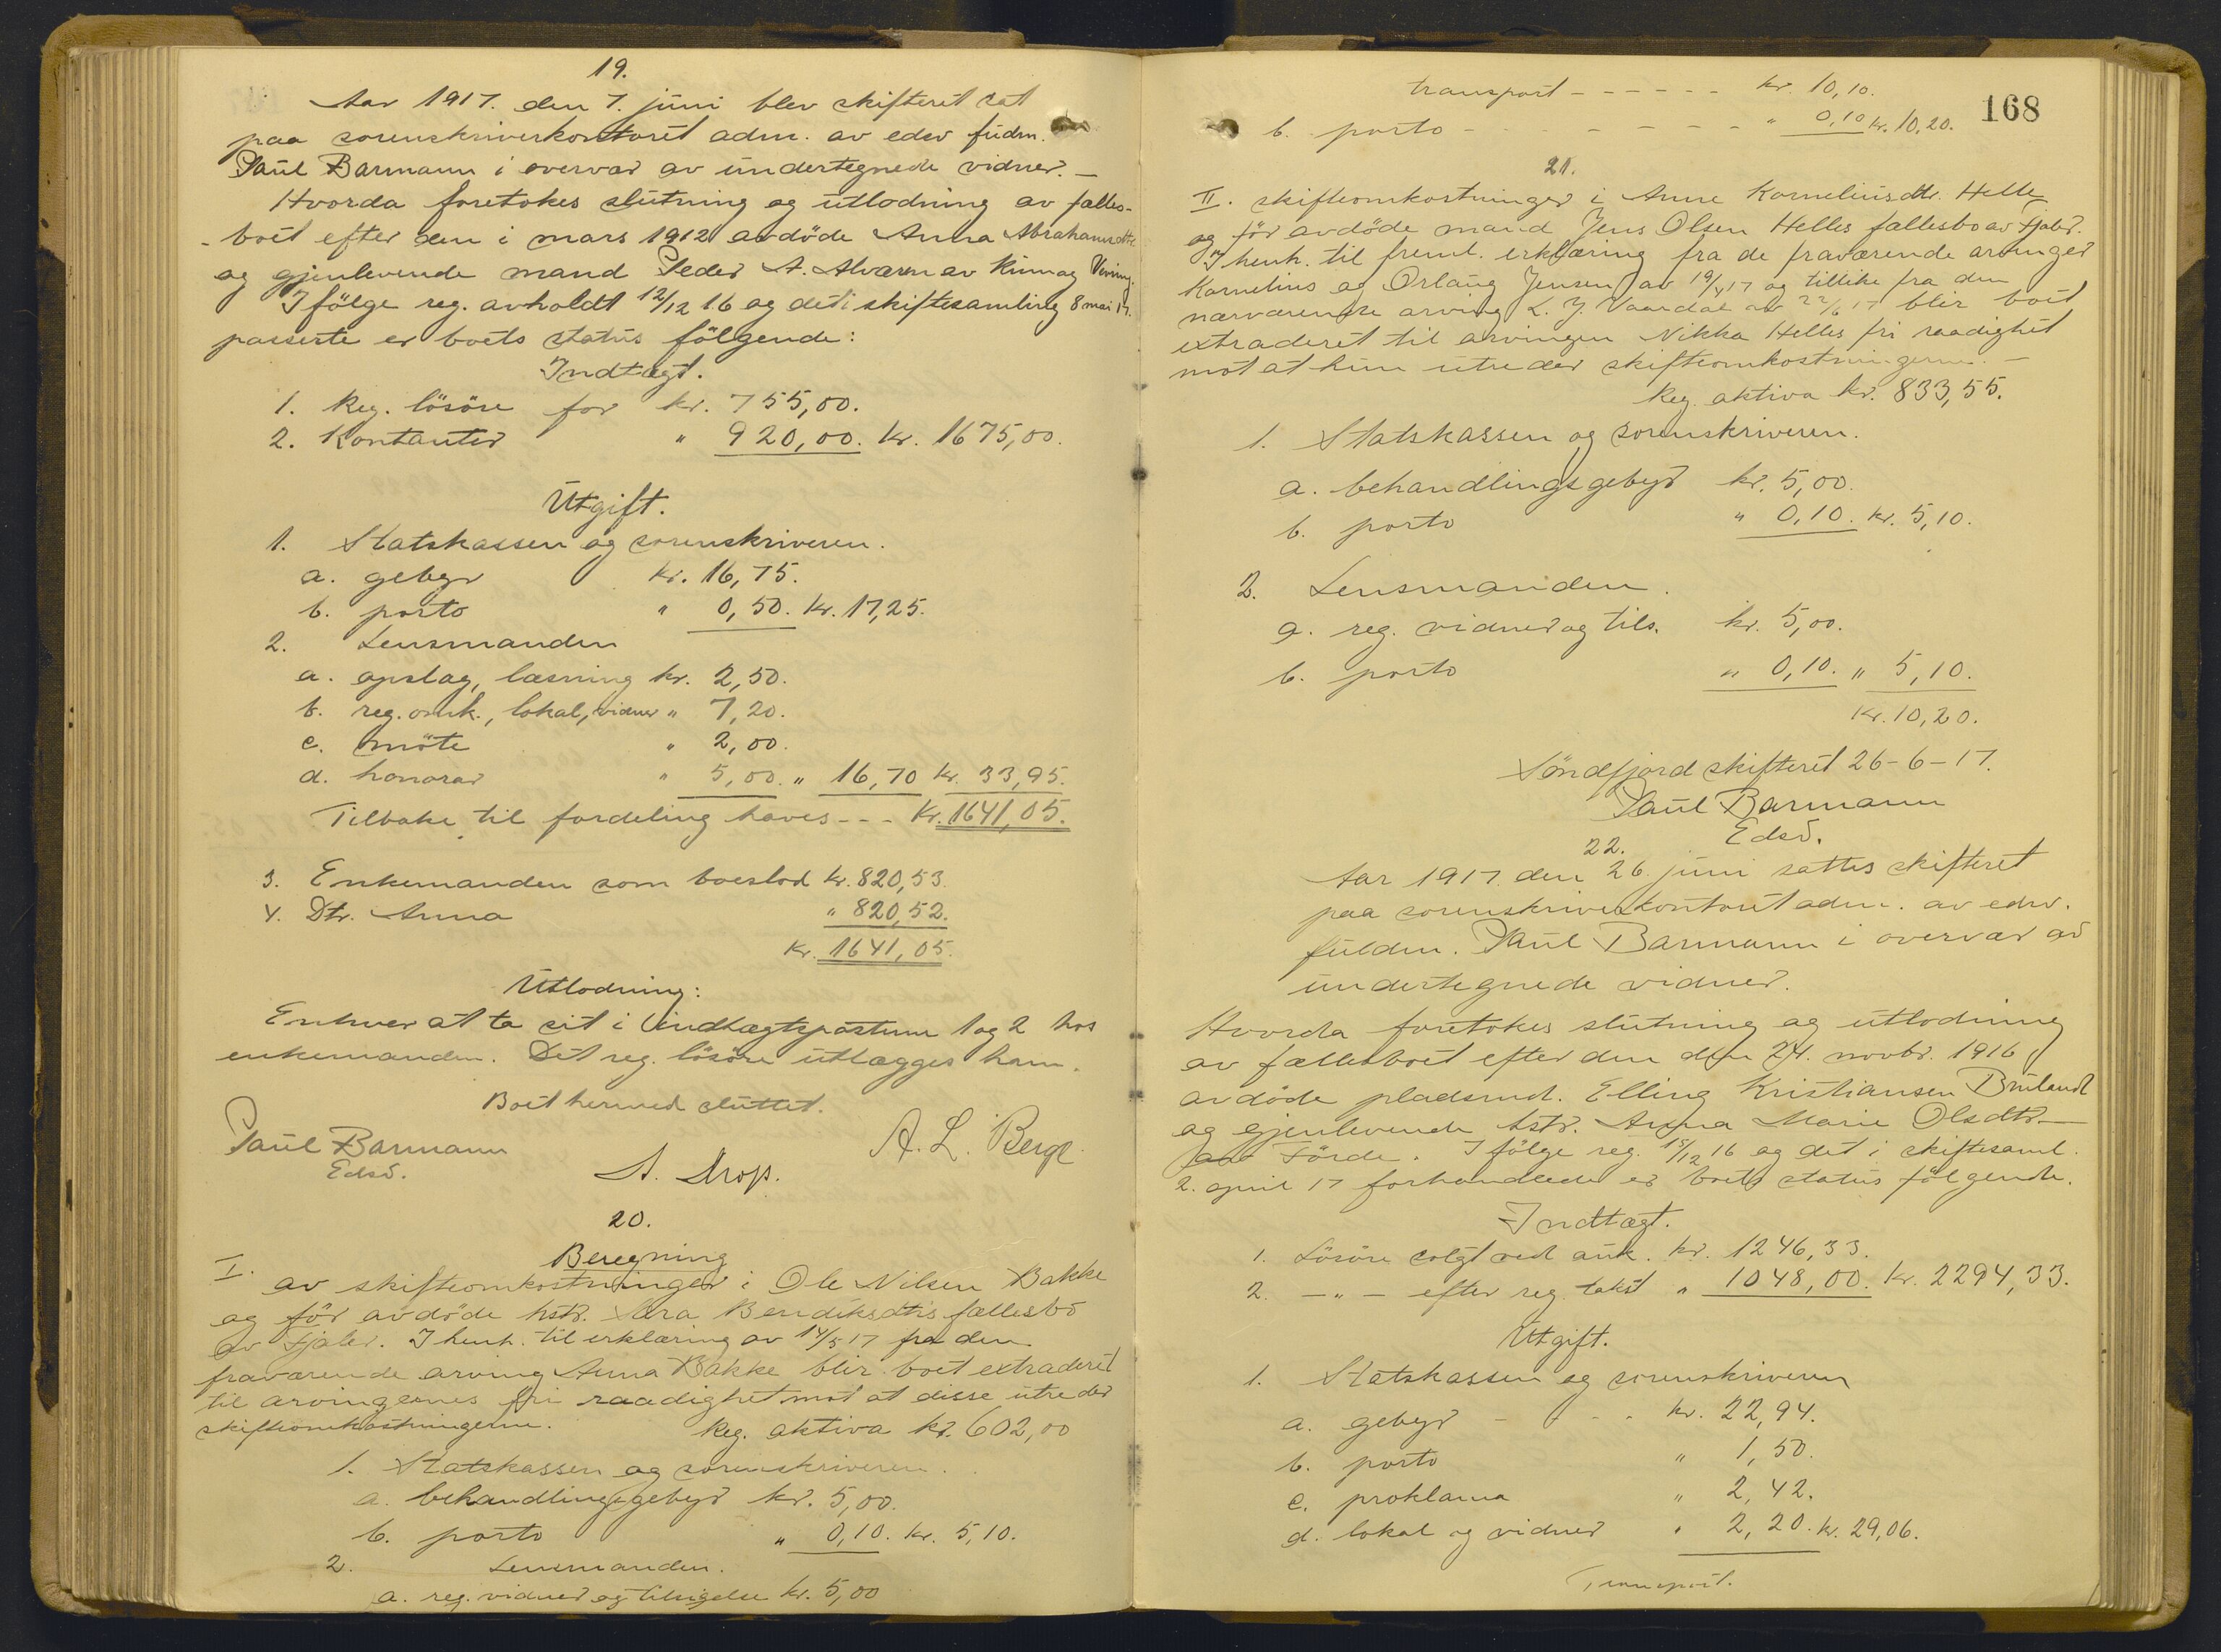 19.
Aar 1917. den 7. juni blev skifteret sat
paa sorenskriverkontoret adm. av edsv fuldm.
Paul Barmann i overvær av undertegnede vidner. –
Hvorda foretokes slutning og utlodning av fælles-
- boet efter den i mars 1912 avdöde Anna Abrahamsdtr.
og gjenlevende mand Peder A. Alværn av Kinn og
I fölge reg. avholdt 12/12 16 og det i skiftesamling 8 mai 17.
passerte er boets status fölgende:
Indtægt.
1. Reg. lösöre for kr. 755,00.
2. Kontanter " 920,00. Kr. 1675,00.
Utgift.
1. Statskassen og sorenskriveren.
a. gebyr kr. 16,75.
b. porto " 0,50. Kr. 17,25.
2. Lensmanden
a. opslag, læsning kr. 2,50.
b. reg. omk., lokal, vidner " 7,20.
c. möte " 2,00.
d. honorar " 5,00. " 16,70 Kr. 33,95.
Tilbake til fordeling haves - - - Kr. 1641,05.
3. Enkemanden som boeslod Kr. 820,53.
4. Dtr. Anna " 820,52.
Kr. 1641,05.
Utlodning:
Enhver at ta sit i indtægtsposterne 1 og 2 hos
enkemanden. Det reg. lösöre utlægges ham.
Boet hermed sluttet.
Paul Barmann
Edsv.
A. L. Berge
20.
Beregning
I. av skifteomkostninger i Ole Nilsen Bakke
og för avdöde hstr. Bendiksdtrs fællesbo
av Fjaler. I henh. til erklæring av 14/5 17 fra den
fraværende arving Anna Bakke blir boet extraderet
til arvingernes fri raadighet mot at disse utreder
skifteomkostningerne. Reg. aktiva kr. 602,00
1. Statskassen og sorenskriveren.
a. behandlingsgebyr kr. 5,00.
b. porto " 0,10. Kr. 5,10.
2. Lensmanden.
a. reg. vidner og tilsigelse kr. 5,00
transport - - - - - - kr. 10,10.
b. porto - - - - - - - - " 0,10 Kr. 10,20.
168
21.
II. skifteomkostninger i Anne Korneliusdtr. Helle
og för avdöde mand Jens Olsen Helles fællesbo av Fjaler.
I henh. til freml. erklæring fra de fraværende arvinger
Kornelius og Orlaug Jensen av 19/4 17 og tillike fra den
nærværende arving L. J. Vaardal av 22/6 17 blir boet
extraderet til arvingen Nikka Helles fri raadighet
mot at hun utreder skifteomkostningerne. –
Reg. aktiva kr. 833,55.
1. Statskassen og sorenskriveren.
a. behandlingsgebyr kr. 5,00.
b. porto " 0,10. Kr. 5,10.
2. Lensmanden.
a. reg. vidner og tils. kr. 5,00.
b. porto " 0,10. " 5,10.
Kr. 10,20.
Söndfjord skifteret 26-6-17.
Paul Barmann
Edsv.
22.
Aar 1917 den 26. juni sattes skifteret
paa sorenskriverkontoret adm. av edsv.
fuldm. Paul Barmann i overvær av
undertegnede vidner.
Hvorda foretokes slutning og utlodning
av fællesboet efter den den 24. novbr. 1916
avdöde pladsmd. Elling Kristiansen Bruland
og gjenlevende hstr. Anna Marie Olsdtr.
av Förde. I fölge reg. 15/12 16 og det i skiftesaml.
2. april 17 forhandlede er boets status fölgende.
Indtægt.
1. Lösöre solgt ved auk. kr. 1246,33.
2. - " - efter reg. takst " 1048,00. Kr. 2294,33.
Utgift.
1. Statskassen og sorenskriveren
a. gebyr - - - kr. 22,94.
b. porto " 1,50.
c. proklama " 2,42.
d. lokal og vidner " 2,20. Kr. 29,06.
Transport.